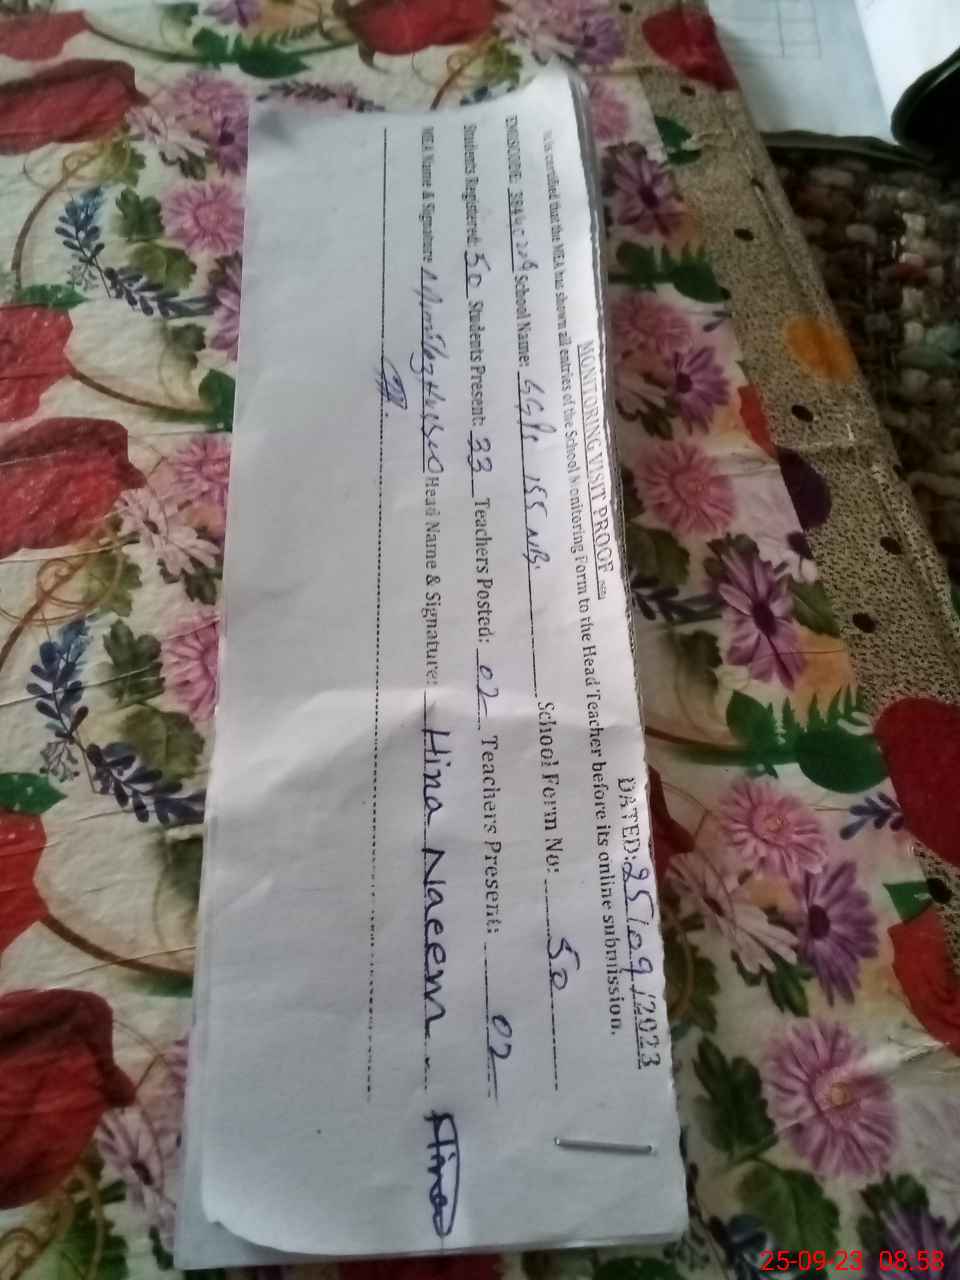 MONITORING VISIT PROOF
DATED: 25/09/2023
It is certified that the MEA has shown all entries of the School Monitoring Form to the Head Teacher before its online submission.
EMISCODE: 384 School Name: 155 NB. School Form No: 50
Students Registered: 50 Students Present: 33 Teachers Posted: 02 Teachers Present: 02
MEA Name & Signature Head Name & Signature: Hina Naeem Hina
25-09-23 08:58